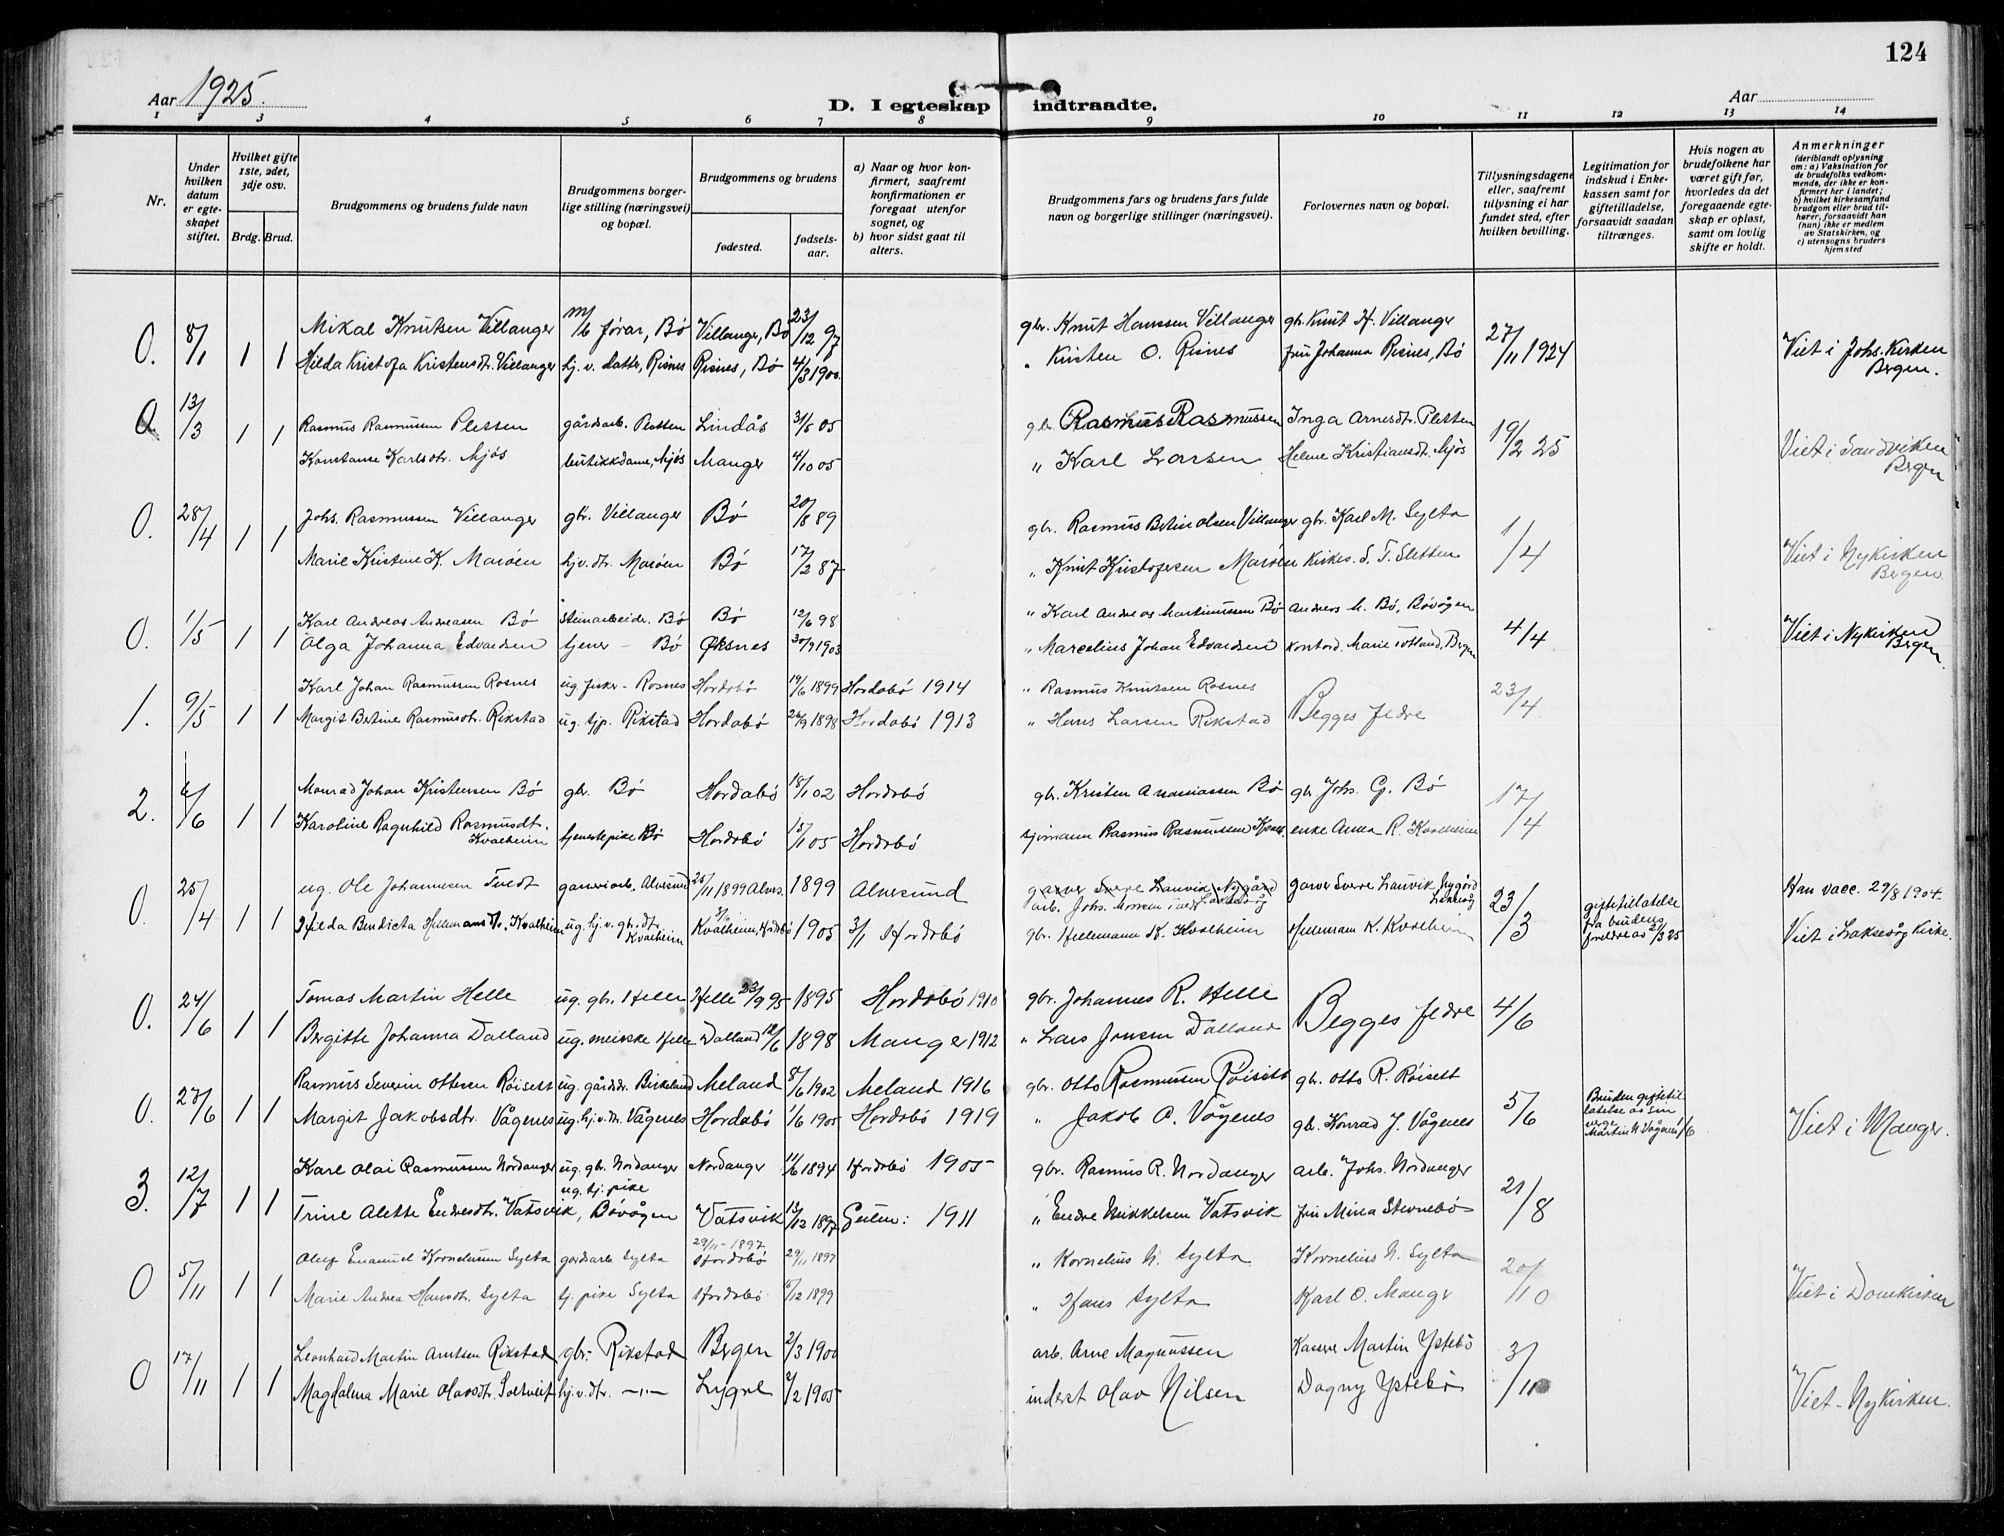 124
Aar 1925.
D. I egteskap indtraadte.
Aar
1 2 3 4 5 6 7 8 9 10 11 12 13 14
Nr.
Under hvilken datum er egteskapet stiftet.
Hvilket gifte 1ste, 2det, 3dje osv.
Brdg. Brud.
Brudgommens og brudens fulde navn
Brudgommens borgerlige stilling (næringsvei) og bopæl.
Brudgommens og brudens
fødested.
fødselsaar.
a) Naar og hvor konfirmert, saafremt konfirmationen er foregaat utenfor sognet, og
b) hvor sidst gaat til alters.
Brudgommens fars og brudens fars fulde navn og borgerlige stillinger (næringsvei).
Forlovernes navn og bopæl.
Tillysningsdagene eller, saafremt tillysning ei har fundet sted, efter hvilken bevilling.
Legitimation for indskud i Enkekassen samt for giftetilladelse, forsaavidt saadan tiltrænges.
Hvis nogen av brudefolkene har været gift før, hvorledes da det foregaaende egteskap er opløst, samt om lovlig skifte er holdt.
Anmerkninger
(deriblandt oplysning om: a) Vaksination for de brudefolks vedkommende, der ikke er konfirmert her i landet; b) hvilket kirkesamfund brudgom eller brud tilhører, forsaavidt han (hun) ikke er medlem av Statskirken, og c) utensogns bruders hjemsted
0. 8/1 1 1 Mikal Knutsen Villanger m/b fører, Bø Villanger, Bø 23/12 97 gbr. Knut Hanssen Villanger gb. Knut H. Villanger 27/11 1924 Viet i Johs. Kirken Bergen.
Hilda Kristofa Kristensdtr. Villanger hj. v. datter, Risnes Risnes, Bø 4/3 1900 " Kristen O. Risnes fru Johanna Risnes, Bø
0. 13/3 1 1 Rasmus Rasmussen Pletten gårdsarb. Pletten Lindås 3/5 05 gbr. Rasmus Rasmussen Inga Arnesdtr. Pletten 19/2 25 Viet i Sandviken Bergen
Konstanse Karlsdtr. Mjøs butikkdame, Mjøs Manger 4/10 05 " Karl Larsen Helene Kristiansdt. Mjøs
0. 28/4 1 1 Johs. Rasmussen Villanger gbr. Villanger Bø 20/8 89 gbr. Rasmus Bertin Olsen Villanger gbr. Karl M. Sylta 1/4 Viet i Nykirken Bergen
Marie Kristine K. Marøen hj. v. dtr. Marøen Bø 17/2 87 " Knut Kristofersen Marøen Kirkes. S. T. Sletten
0. 1/5 1 1 Karl Andreas Andreasen Bø stenarbeider. Bø Bø 12/6 98 " Karl Andreas Martinussen Bø Andreas M. Bø, Bøvågen 4/4 Viet i Nykirken Bergen.
Olga Johanna Edvardsen tjener - Bø Øksnes 30/9 1903 " Marcelius Johan Edvardsen kontord. Marie Totland, Bergen
1. 9/5 1 1 Karl Johan Rasmussen Rosnes ug. fisker - Rosnes Hordabø 19/6 1899 Hordabø 1914 " Rasmus Knutsen Rosnes Begges fedre 23/4
Margit Bertine Rasmusdtr. Rikstad ug. tjp. Rikstad Hordabø 26/9 1898 Hordabø 1913 " Hans Larsen Rikstad
2. 6/6 1 1 Monrad Johan Kristensen Bø gbr. Bø Hordabø 18/1 02 Hordabø gbr. Kristen Ananiassen Bø gb. Johs. G. Bø 17/4
Karoline Ragnhild Rasmusdtr. Kvalheim tjenestepike Bø Hordabø 15/1 05 Hordabø sjømann Rasmus Rasmussen enke Anna R. Kvalheim
0. 25/4 1 1 ug. Ole Johannesen Tvedt garveriarb. Alversund 25/11 1899 Alvers. 1899 Alversund garver Sverre Lauvik, Nygård arb. Johs. garver Sverre Lauvik, Nygård Laksevåg 23/3 giftetilatelse fra brudens foreldre av 2/3 25 Han vacc. 29/8 1904.
Hilda Bendicta Hellemansdtr. Kvalheim ug. hj. v. gbr. dtr. Kvalheim Kvalheim, Hordabø 1905 3/1 Hordabø gbr. Hellemann K. Kvalheim Hellemann K. Kvalheim Viet i Laksevåg Kirke.
0. 24/6 1 1 Tomas Martin Helle ug. gbr. Helle Helle 23/9 95 1895 Hordabø 1910 gbr. Johannes R. Helle Begges fedre 4/6
Bergitte Johanna Dalland ug. meierske Helle Dalland 12/6 1898 Manger 1912 " Lars Jonsen Dalland
0. 27/6 1 1 Rasmus Severin Ottesen Røisett ug. gårdbr. Birkeland Meland 8/6 1902 Meland 1916 gbr. Otto Rasmussen Røisett gb. Otto R. Røisett 5/6 Bruden giftetillatelse av sin verge Martin N. Vågenes 1/6 Viet i Manger.
Margit Jakobsdtr. Vågenes ug. hj. v. dtr. Vågenes Hordabø 1/6 1905 Hordabø 1919 " Jakob O. Vågenes gb. Konrad J. Vågenes
3. 12/7 1 1 Karl Olai Rasmussen Nordanger ug. gbr. Nordanger Nordanger 11/6 1894 Hordabø 1905 gbr. Rasmus R. Nordanger arb. Johs. Nordanger 21/8
Trine Alette Endresdtr. Vatsvik, ug. tj. pike Bøvågen Vatsvik 13/12 1897 Gulen: 1911 " Endre Mikkelsen Vatsvik fru Mina Stevnebø
0 5/11 1 1 Oluf Emanuel Korneliussen Sylta gårdsarb Sylta 29/11-1897 Hordabø 29/11 1897 " Kornelius N. Sylta Kornelius N. Sylta 20/10 Viet i Domkirken
Marie Andrea Hansdtr. Sylta tj. pike Sylta Hordabø 15/12 1899 " Hans Sylta Karl O. Manger
0 17/11 1 1 Leonhard Martin Arntsen Rikstad gbr. Rikstad Bergen 2/3 1900 arb. Arne Magnussen Kasserer Martin Ystebø 3/11 Viet - Nykirken.
Magdalena Marie Olavsdtr. Soltveit hj. v. dtr. -"- Lygre 2/2 1905 inderst Olav Nilsen Dagny Ystebø